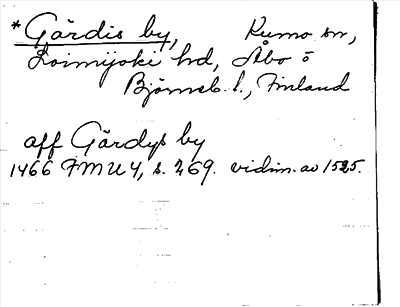 * Gärdis by, Kumo sn,
Loimijoki hd, Åbo o
Björneb. l., Finland
aff Gärdys by
1466 FMU 4, s. 269. vidim. av 1525.